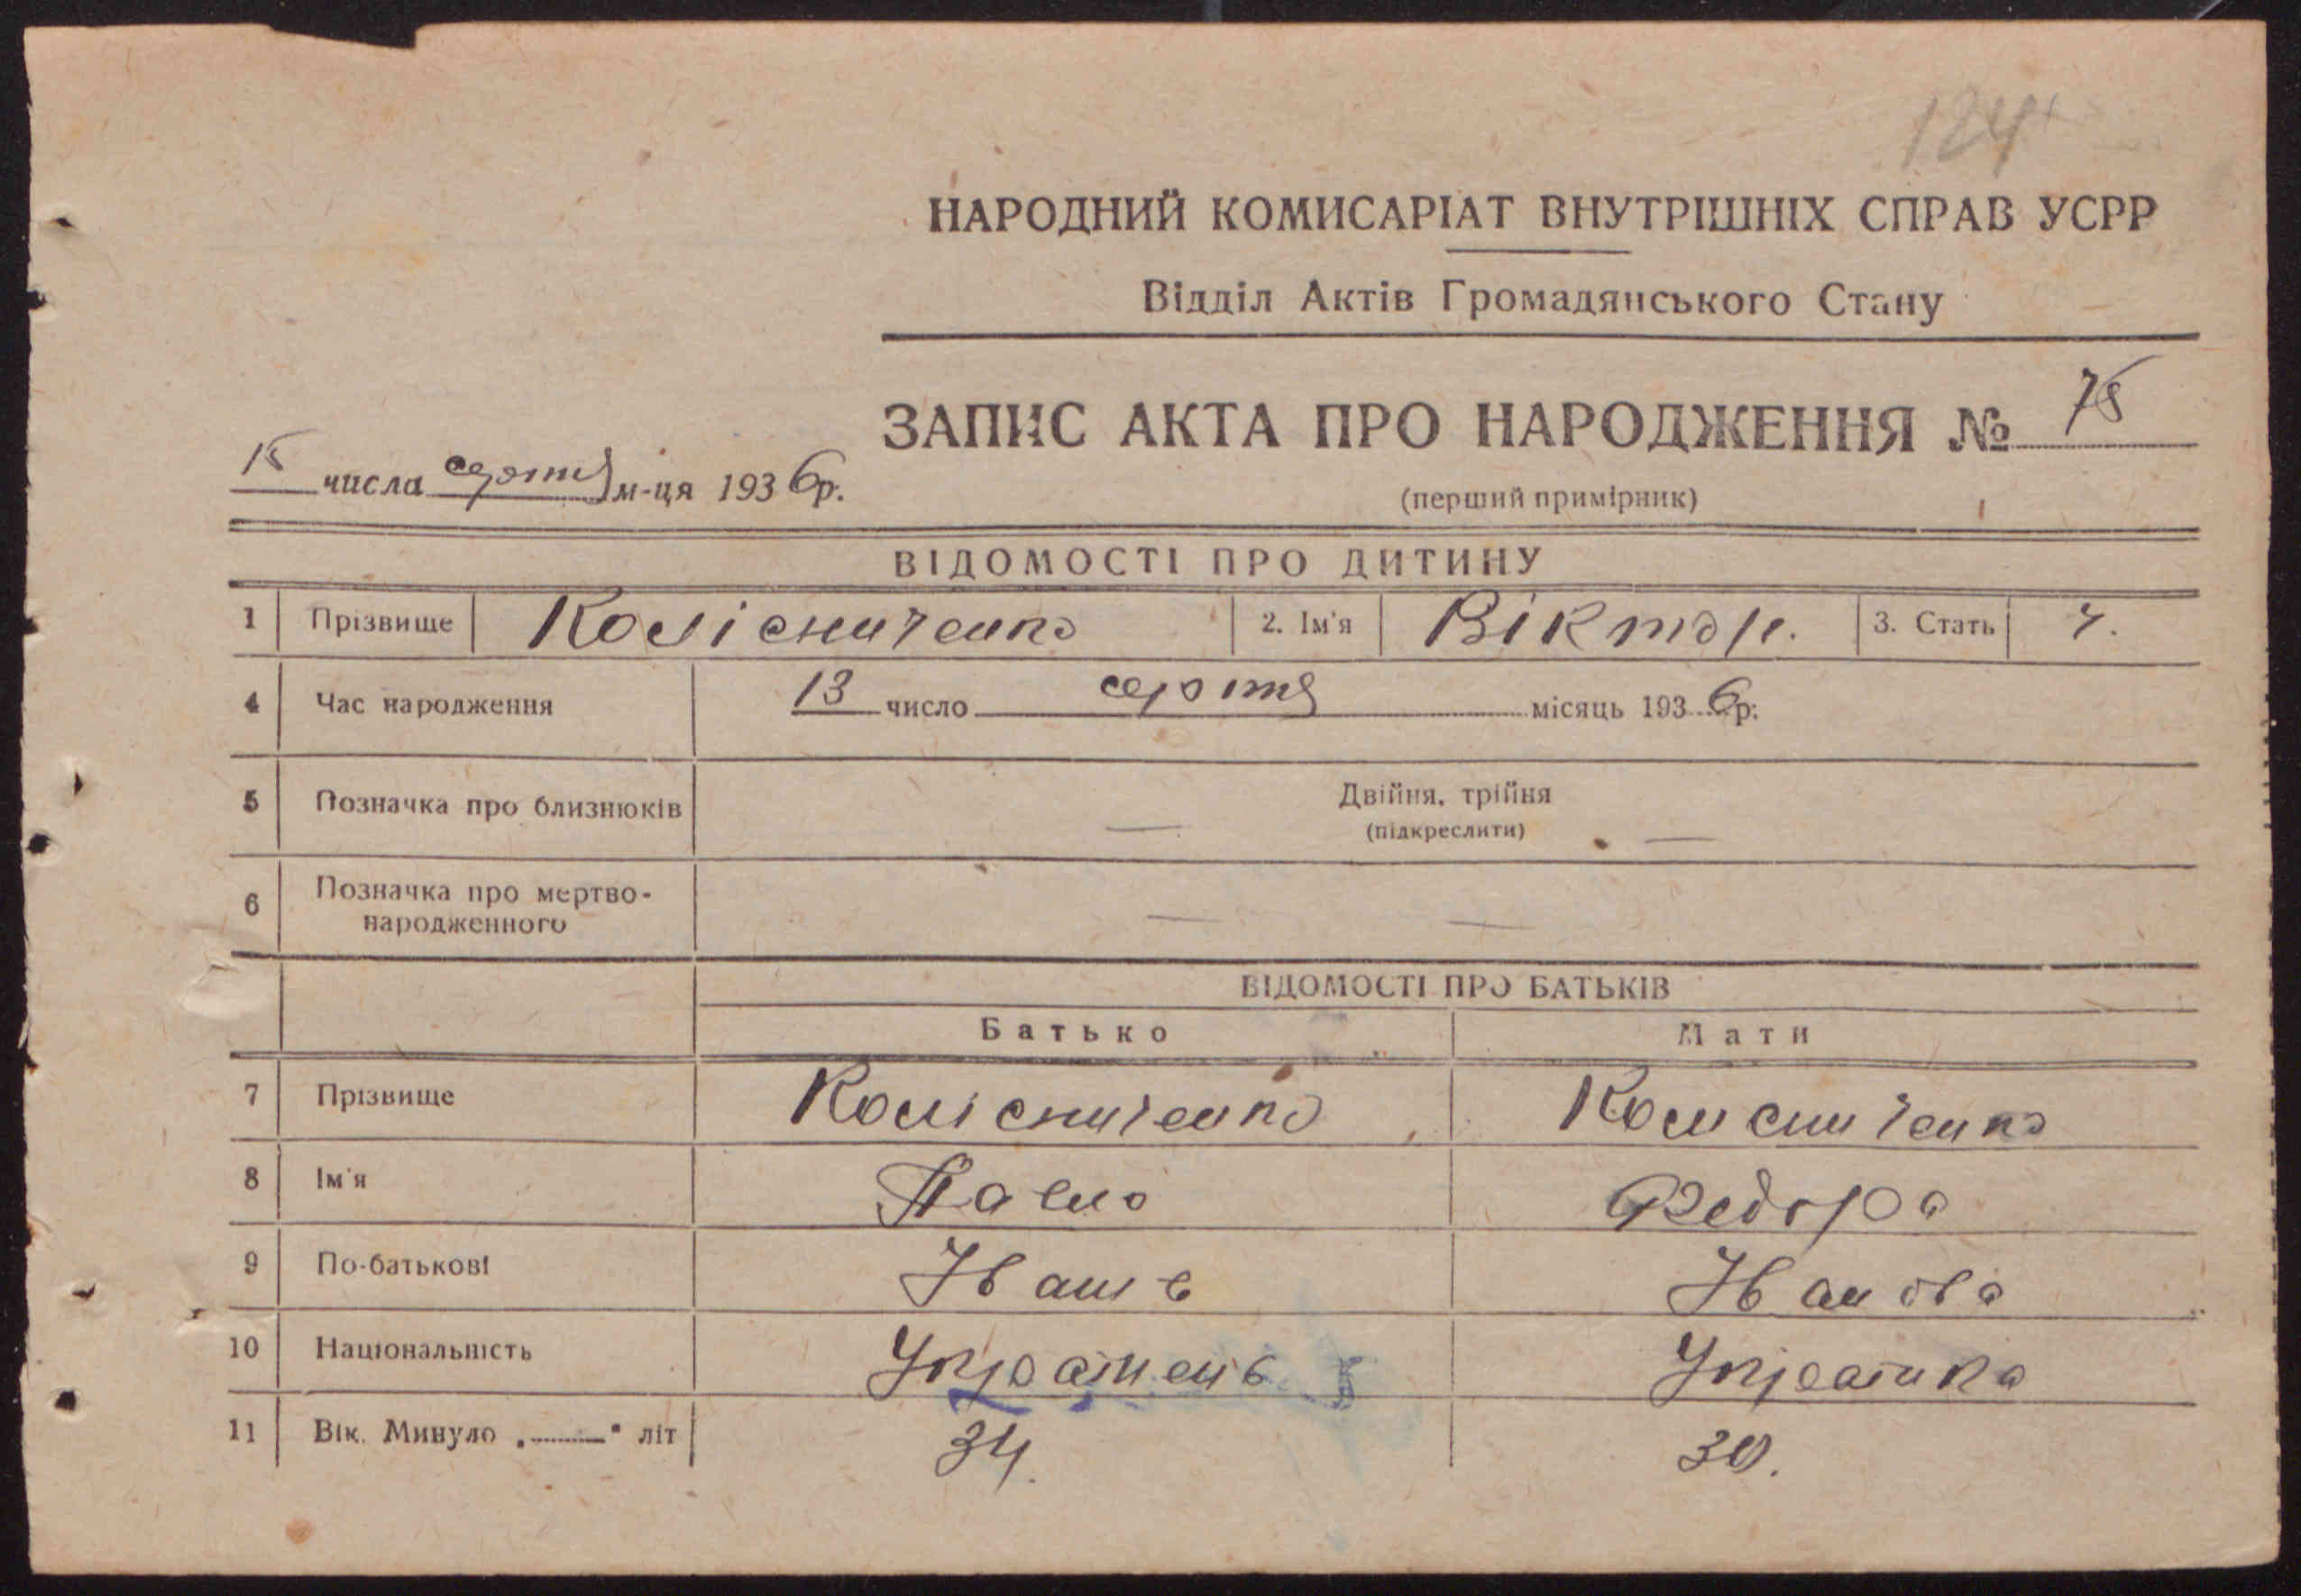 124
НАРОДНИЙ КОМИСАРІАТ ВНУТРІШНІХ СПРАВ УСРР
Відділ Актів Громадянського Стану
ЗАПИС АКТА ПРО НАРОДЖЕННЯ № 78
15 числа серпня м-ця 1936 р.
(перший примірник)
ВІДОМОСТІ ПРО ДИТИНУ
1 Прізвище Колісниченко 2. Ім'я Віктор. 3. Стать ч.
4 Час народження 13 число серпня місяць 1936 р.
5 Позначка про близнюків — Двійня, трійня —
(підкреслити)
6 Позначка про мертво-
народженного — —
ВІДОМОСТІ ПРО БАТЬКІВ
Батько Мати
7 Прізвище Колісниченко Колисниченко
8 Ім'я Павло Федора
9 По-батькові Іванів Іванова
10 Національність Українець Українка
11 Вік. Минуло „—" літ 34. 30.